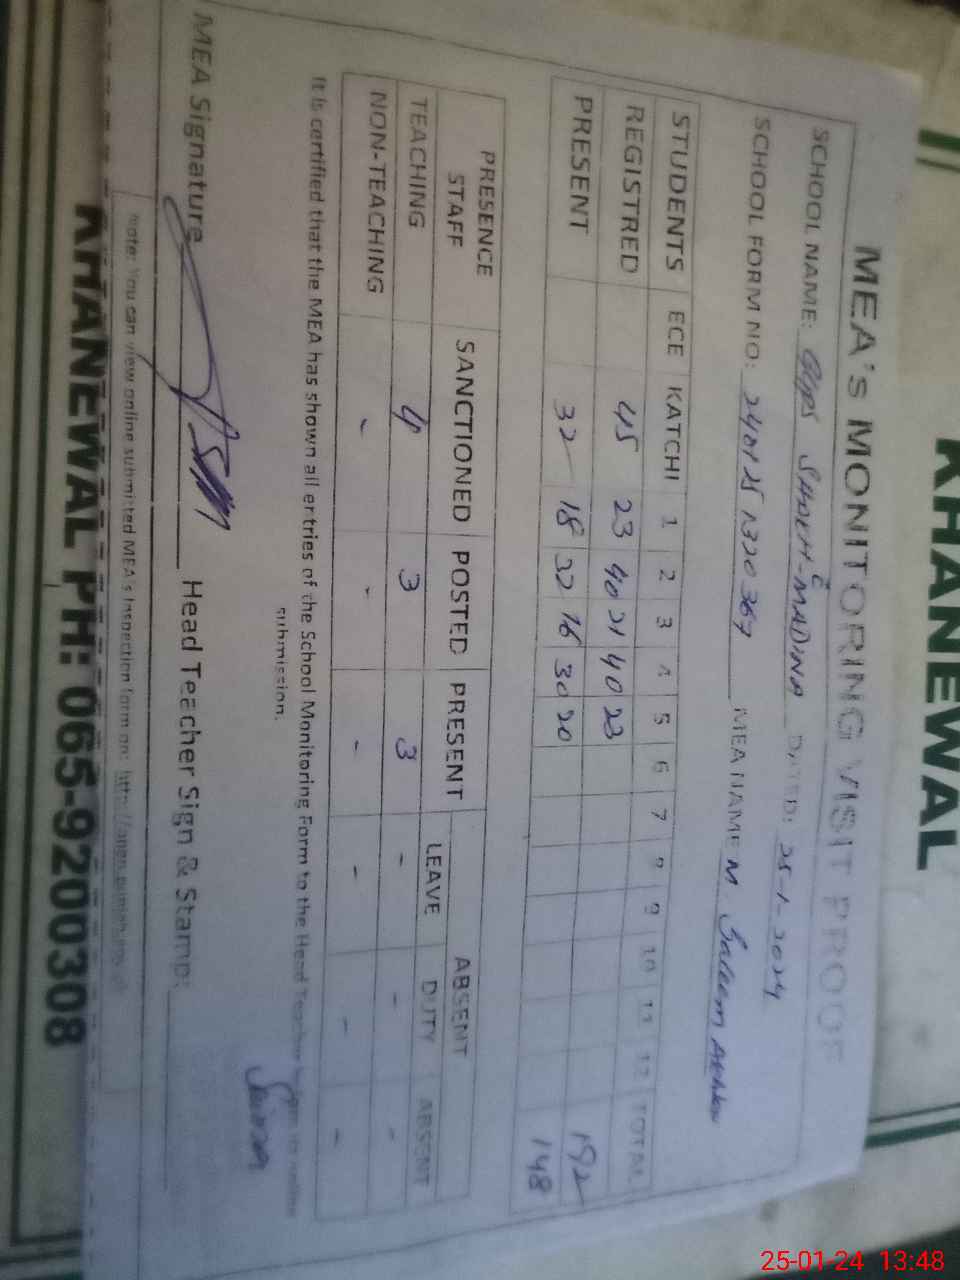 KHANEWAL
MEA's MONITORING VISIT PROOF
SCHOOL NAME: GGPS SHOEH-E-MADINA DATED: 25-1-2024
SCHOOL FORM NO: MEA NAME M. Saleem Akhtar
STUDENTS ECE KATCHI 1 2 3 4 5 6 7 8 9 10 11 12 TOTAL
REGISTRED 45 23 40 21 40 23 192
PRESENT 32 18 32 16 30 20 148
PRESENCE STAFF SANCTIONED POSTED PRESENT ABSENT
LEAVE DUTY ABSENT
TEACHING 4 3 3 - - -
NON-TEACHING - - - - - -
It is certified that the MEA has shown all entries of the School Monitoring Form to the Head Teacher before its online
submission.
MEA Signature Head Teacher Sign & Stamp:
Note: You can view online submitted MEA's Inspection form on: http://open.punjab.gov.pk
KHANEWAL PH: 065-9200308
25-01-24 13:48